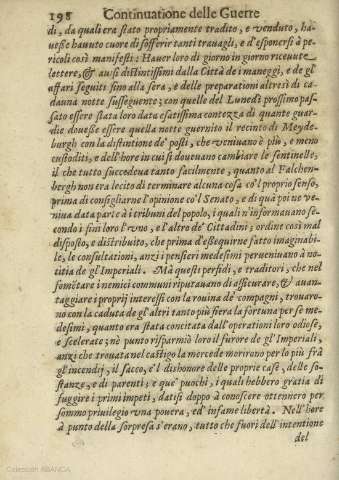 198 Continuatione delle Guerre
di, da quali era stato propriamente tradito, e venduto, ha-
uesse hauuto cuore di sofferir tanti trauagli, e d'esponersi à pe-
ricoli così manifesti: Hauer loro di giorno in giorno riceuute
lettere, & auisi distintissimi dalla Città de i maneggi, e de gl'
affari seguiti sino alla sera, e delle preparationi altresì di ca-
dauna notte sussequente; con quelle del Lunedì prossimo pas-
sato essere stata loro data esatissima contezza di quante guar-
die douesse essere quella notte guernito il recinto di Meyde-
burgh con la distintione de' posti, che veniuano è più, e meno
custoditi, e dell'hore in cui si doueuano cambiare le sentinelle,
il che tutto succedeua tanto facilmente, quanto al Falchen-
bergh non era lecito di terminare alcuna cosa co'l proprio senso,
prima di consigliarne l'opinione co'l Senato, e di quà poi ne ve-
niua data parte à i tribuni del popolo, i quali n'informauano se-
condo i fini loro l'vno, e l'altro de' Cittadini; ordine così mal
disposto, e distribuito, che prima d'esequirne fatto imaginabi-
le, le consultationi, anzi i pensieri medesimi perueniuano à no-
titia de gl'Imperiali. Mà questi perfidi, e traditori, che nel
fomētare i nemici communi riputauano di assicurare, & auan-
taggiare i proprij interessi con la rouina de' compagni, trouaro-
no con la caduta de gl'altri tanto più fiera la fortuna per se me-
desimi, quanto era stata concitata dall'operationi loro odiose,
e scelerate; nè punto risparmiò loro il furore de gl'Imperiali,
anzi chè trouata nel castigo la mercede morirono per lo più frà
gl'incendij, il sacco, e'l dishonore delle proprie case, delle so-
stanze, e di parenti; e que' puochi, i quali hebbero gratia di
fuggire i primi impeti, datisi doppo à conoscere ottennero per
sommo priuilegio vna pouera, ed' infame libertà. Nell'hore
à punto della sorpresa s'erano, tutto che fuori dell'intentione
del
Colección ABANCA